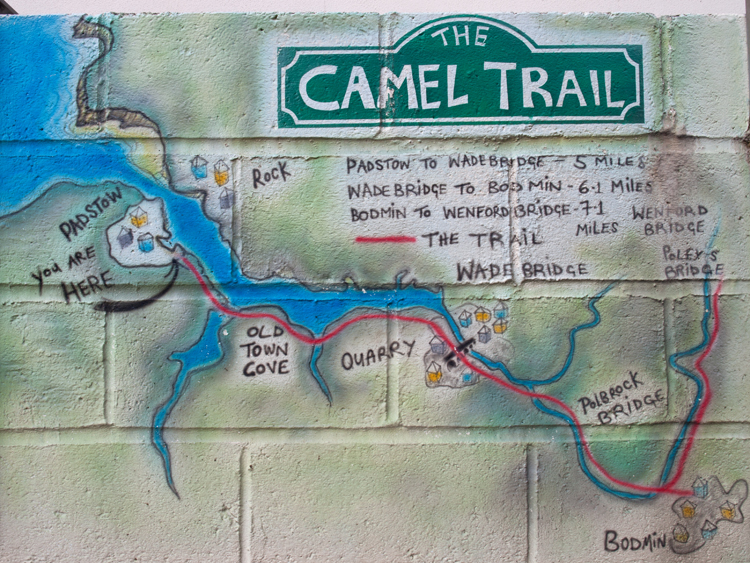 THE
CAMEL TRAIL
ROCK
PADSTOW TO WADEBRIDGE - 5 MILES
WADEBRIDGE TO BODMIN - 6.1 MILES
BODMIN TO WENFORD BRIDGE - 7.1
MILES
THE TRAIL
WENFORD
BRIDGE
PADSTOW
YOU ARE
HERE
WADEBRIDGE
POLEY'S
BRIDGE
OLD
TOWN
COVE
QUARRY
POLBROCK
BRIDGE
BODMIN